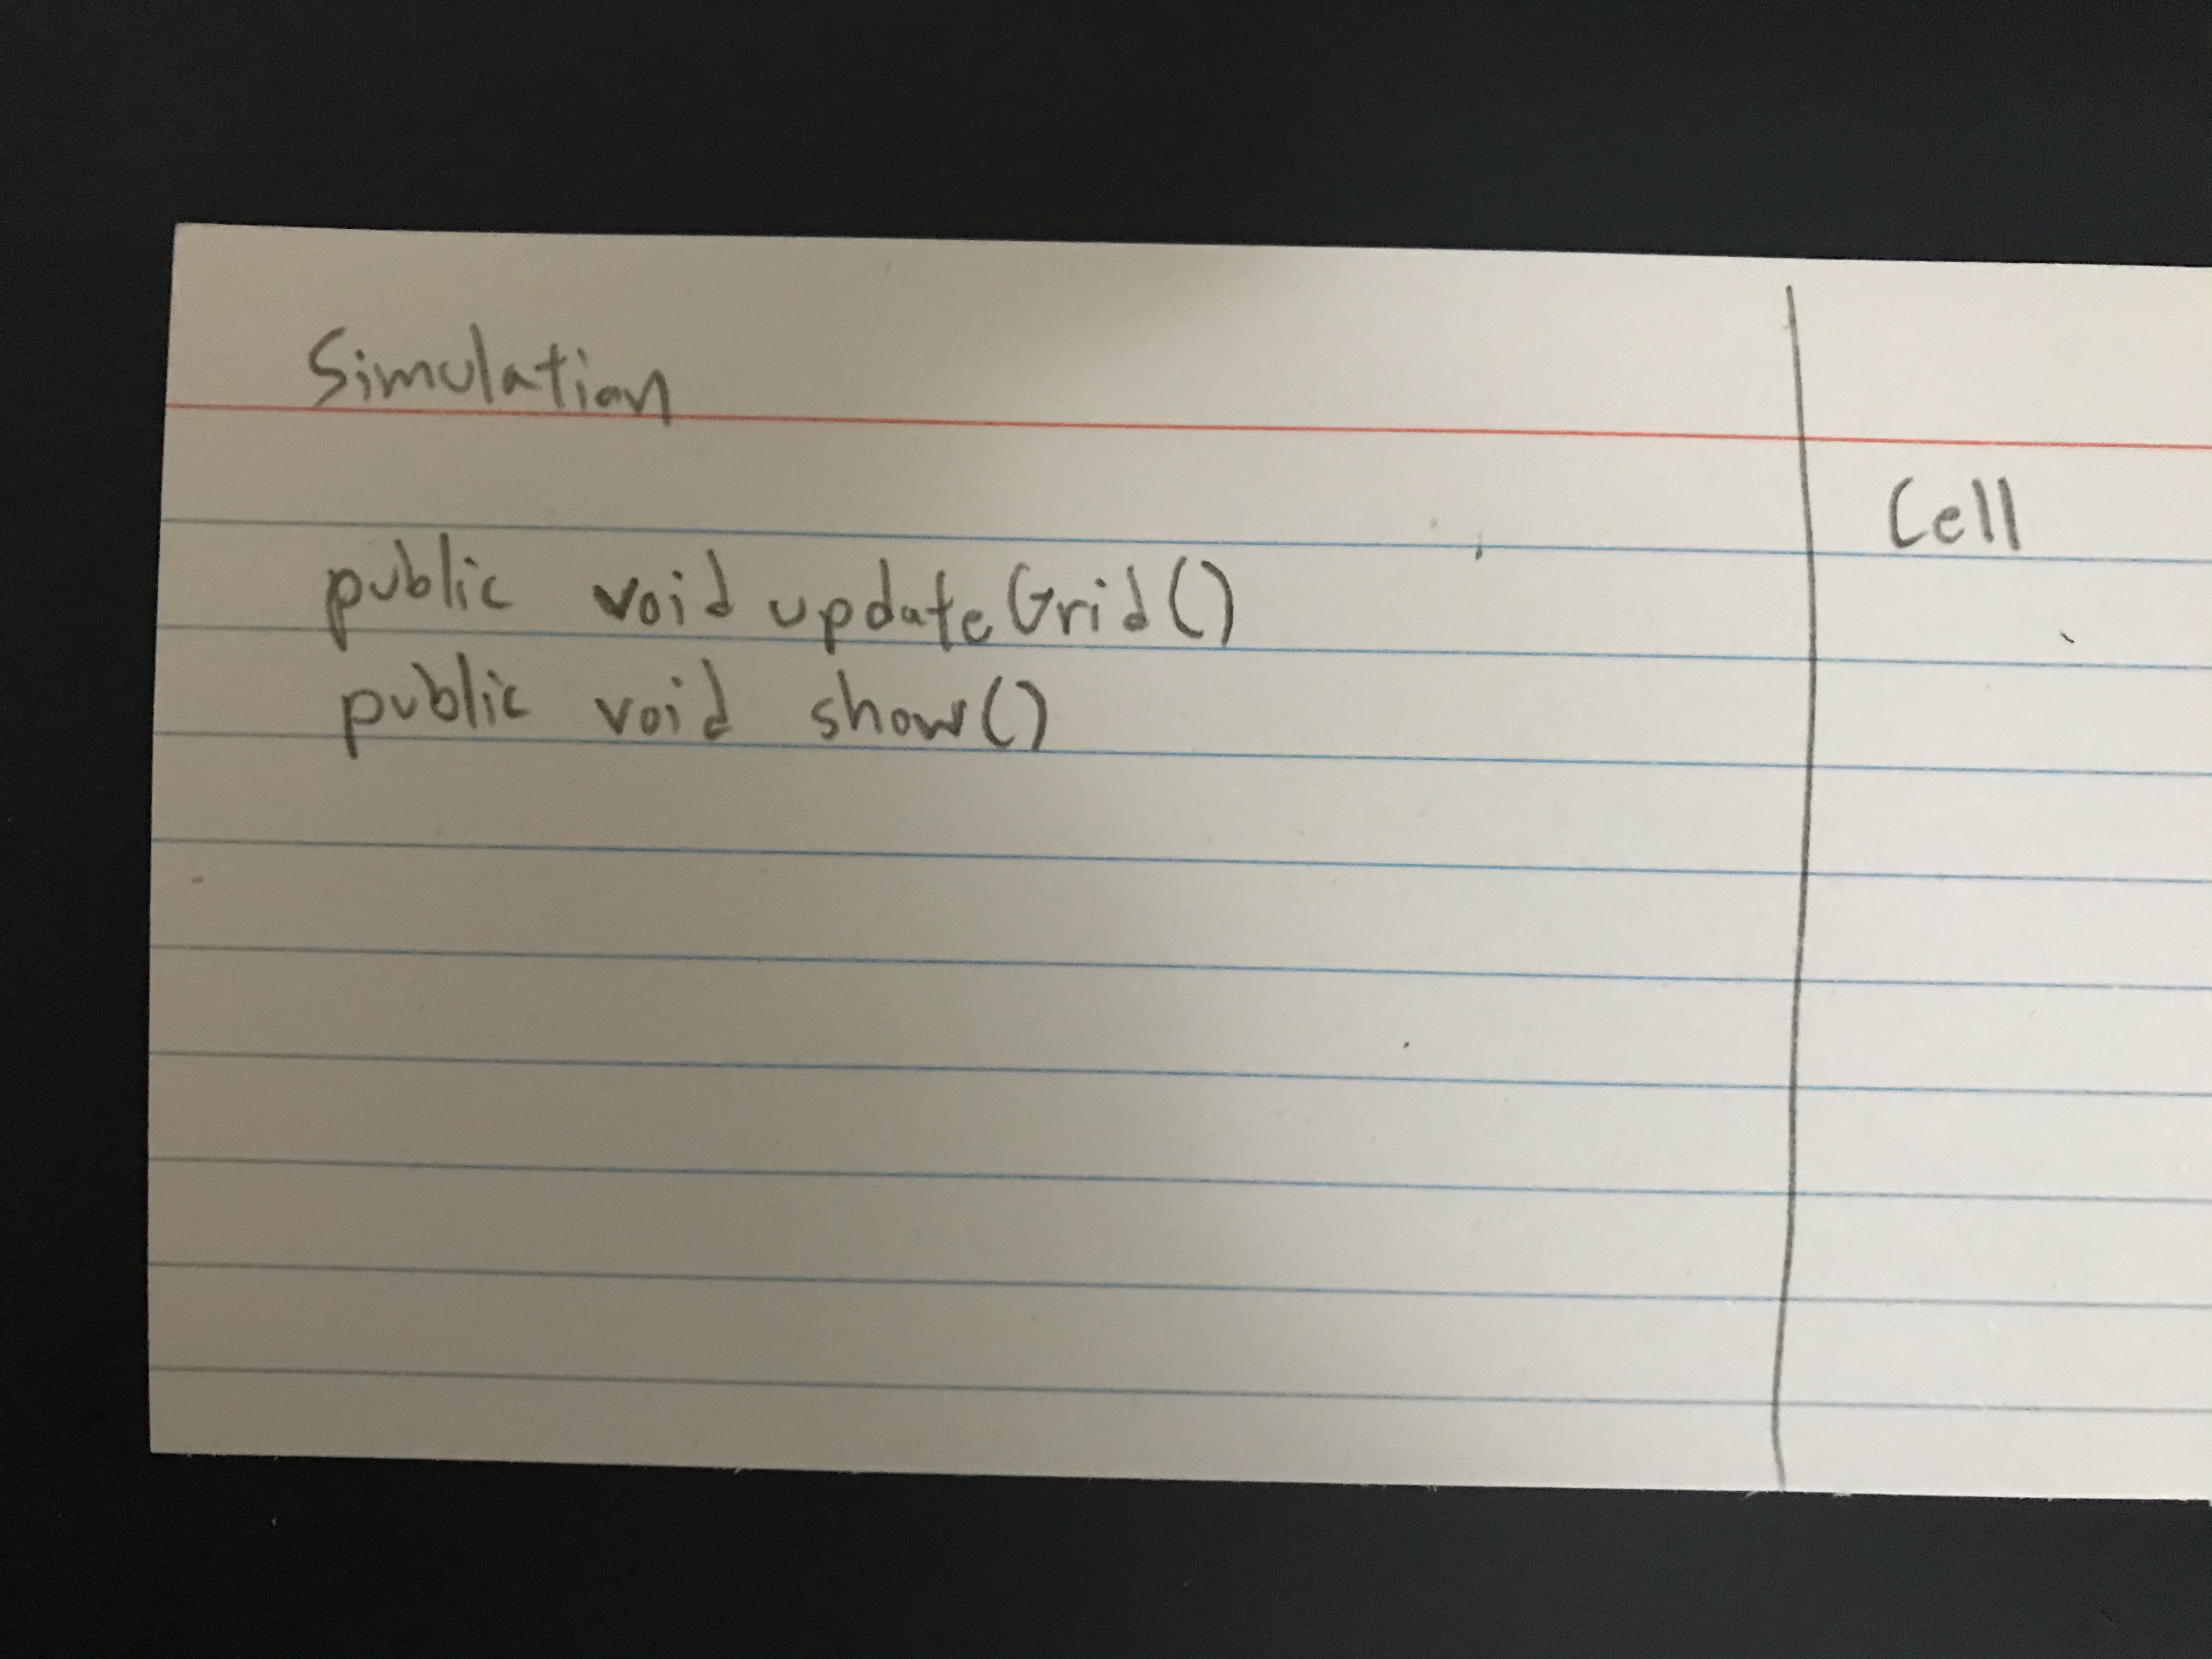 Simulation
Cell
public void updateGrid()
public void show()